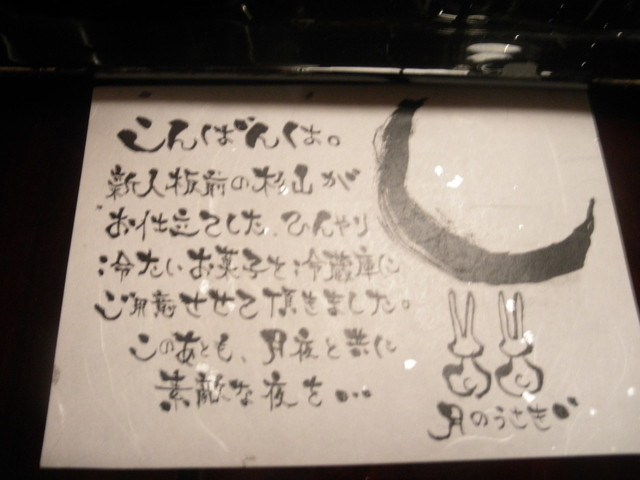 こんばんは。
新人板前の杉山が
お仕立てした、ひんやり
冷たいお菓子を冷蔵庫に
ご用意させて頂きました。
このあとも、月夜と共に
素敵な夜を…
月のうさぎ